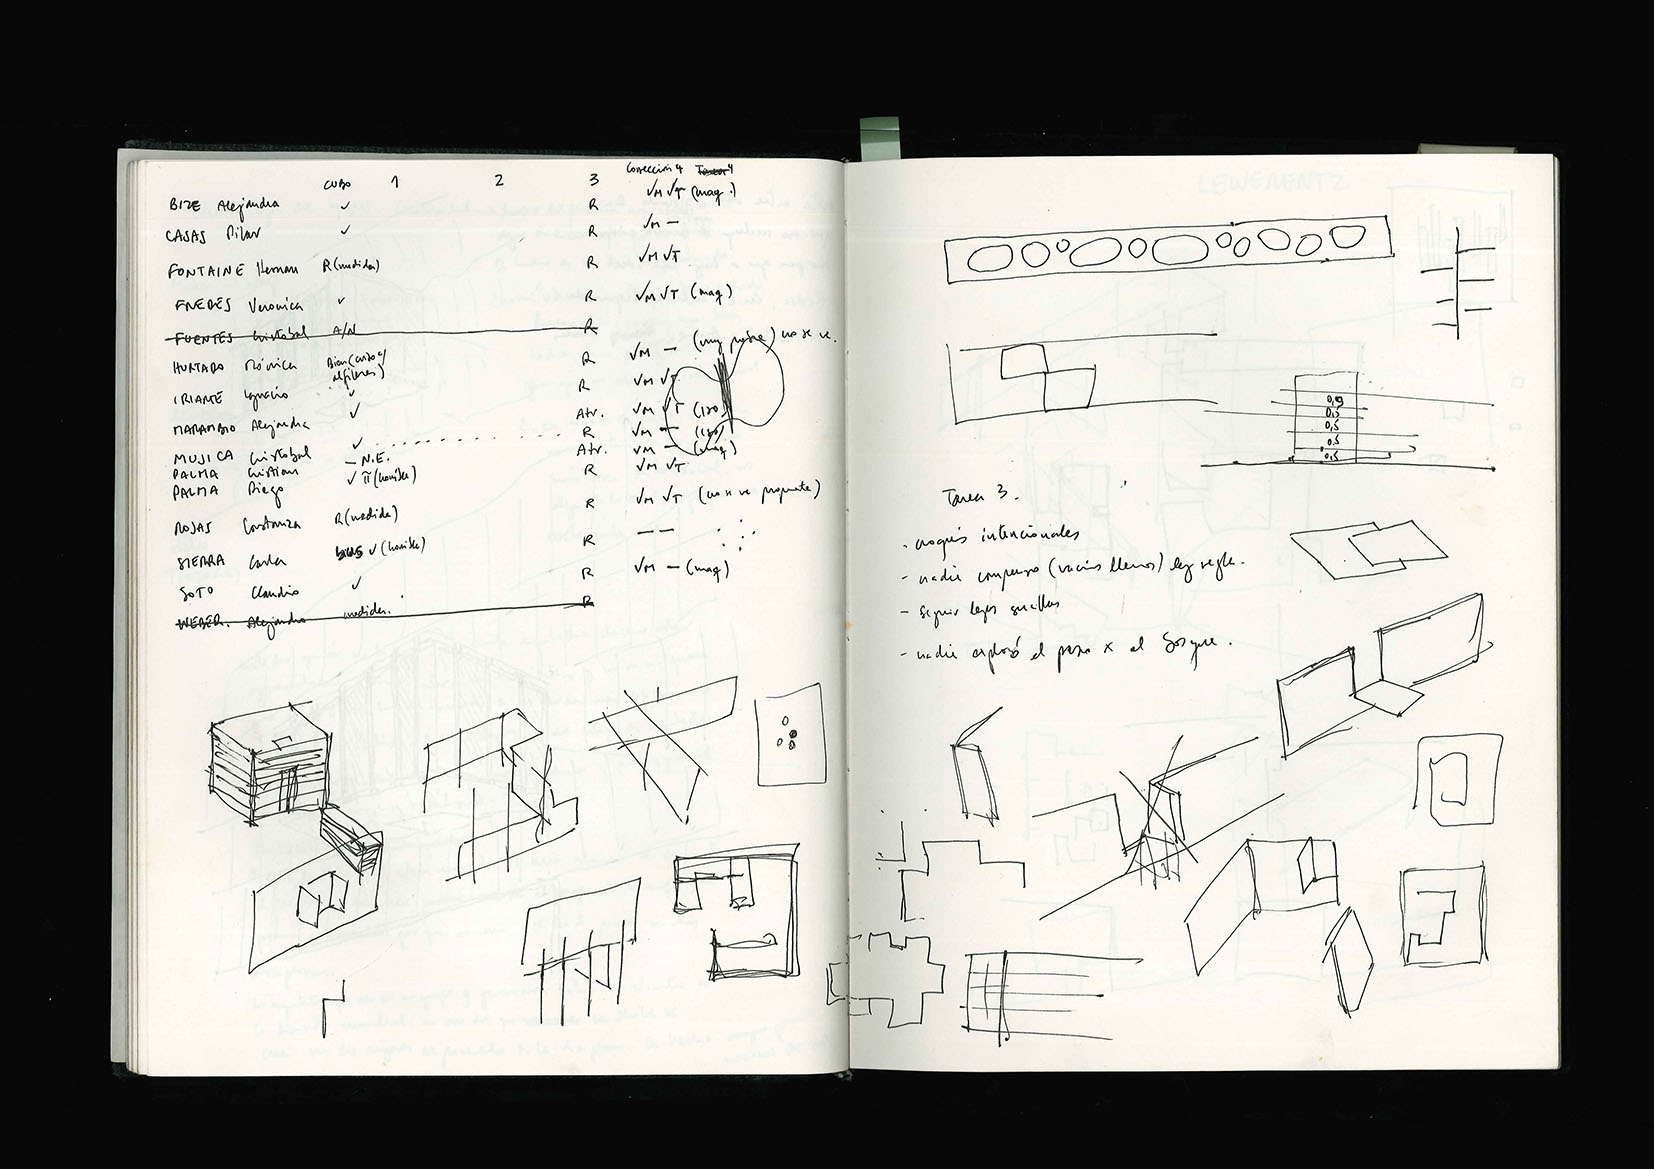 CUBO 1 2 3 Corrección 4 Tarea 4
BIZE Alejandra ✓ R √M √T (maq.)
CASAS Pilar ✓ R √M —
FONTAINE Hernan R (medidas) R √M √T
Veronica ✓ R √M √T (maq)
FUENTES Cristobal A/N R
HURTADO Mónica Bien (cubo c/ alfileres) R √M — (muy pobre) no se ve.
IRIARTE Ignacio ✓ R √M √T
MARAMBIO Alejandra ✓ Atr. √M √T (iso)
MUJICA Cristobal ✓ R √M — (iso)
PALMA Cristian — N.E. Atr. √M — (maq)
PALMA Diego ✓ (horrible) R √M √T
ROJAS Constanza R (medida) R √M √T (no se ve propuesta)
SIERRA Carla ✓ (horrible) R — —
SOTO Claudio ✓ R √M — (maq)
WEBER. Alejandro medidas. R
LEWERENTZ
0,5
0,5
0,5
0,5
Tarea 3.
- croquis intencionales
- nadie compuso (vacios llenos) ley regla.
- seguir leyes
- nadie exploró el paso x el bosque.